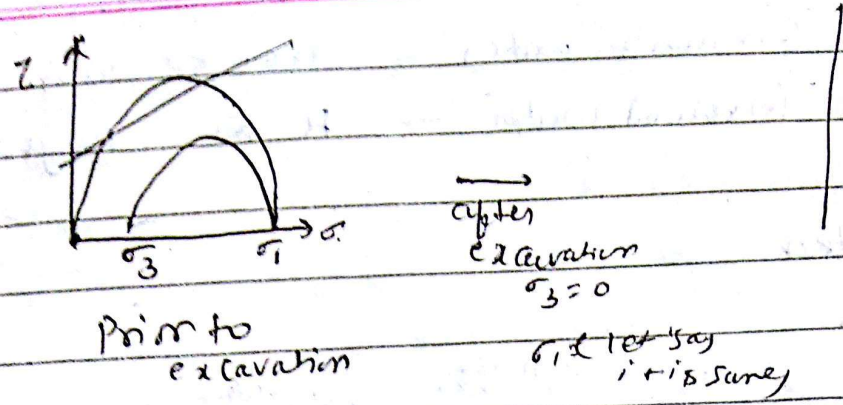 τ
σ3 σ1 σ
Prior to
excavation
after
excavation
σ3 = 0
σ1 let say
it is same